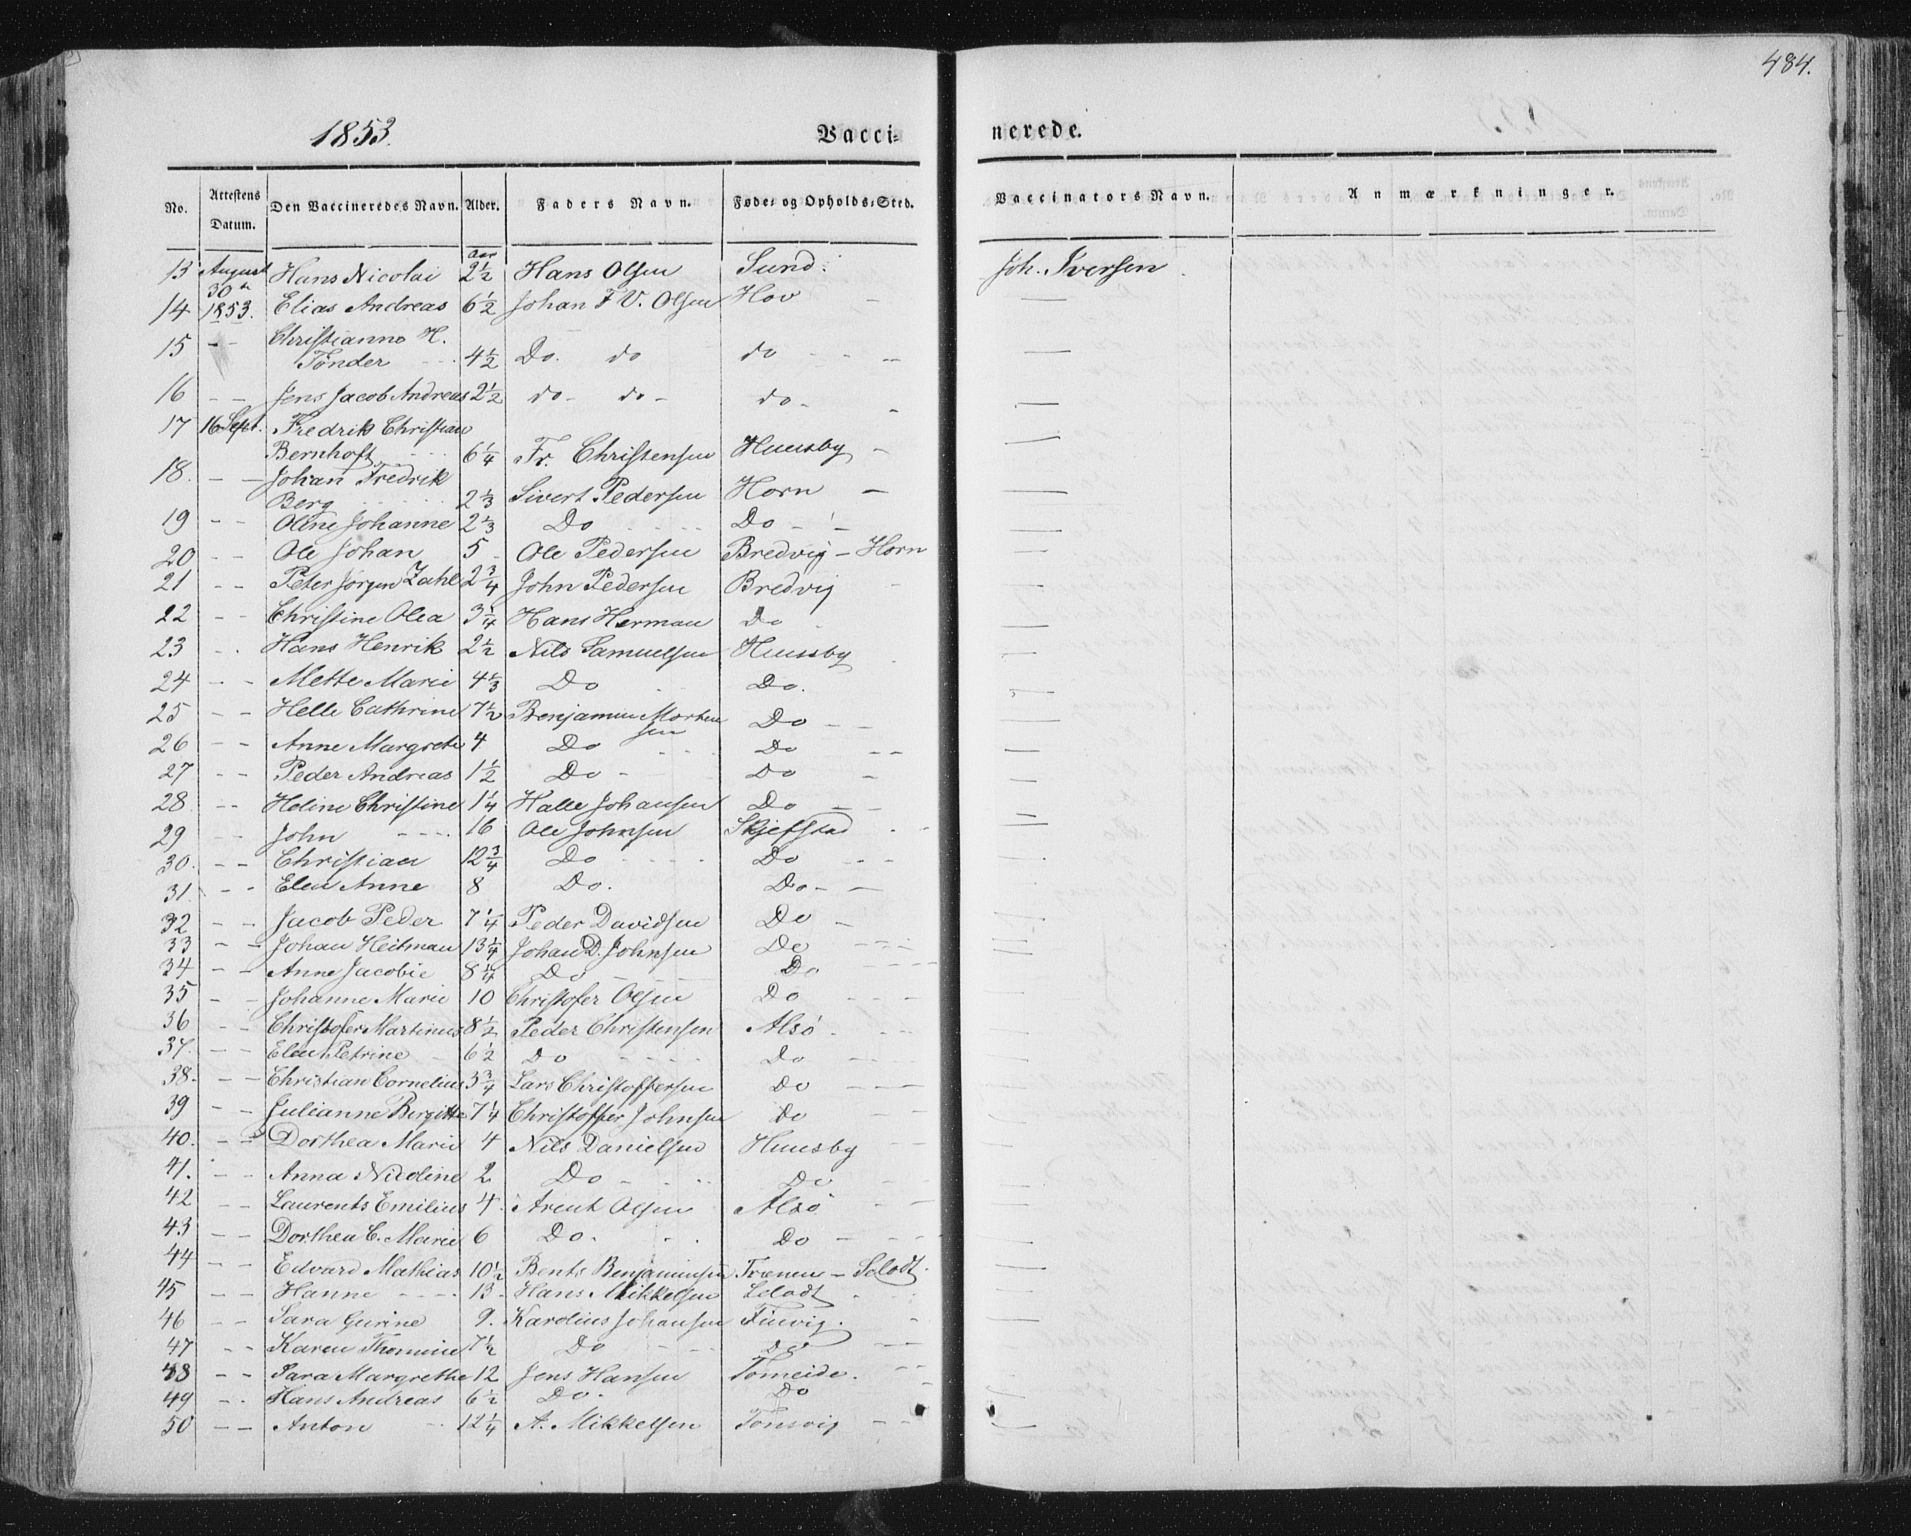 484.
1853. Vaccinerede.
No. Attestens Datum. Den Vaccineredes Navn. Alder. Faders Navn. Føde- og Opholds-Sted. Vaccinators Navn. Anmærkninger.
Aar
13 August 30te Hans Nicolai 2½ Hans Olsen Sund. Joh. Iversen
14 1853. Elias Andreas 6½ Johan F V. Olsen Hov — —
15 - - Christianna H.
Tönder 4½ Do. do do - - — —
16 - - Jens Jacob Andreas 2½ do - do - do - - —
17 16 Sept. Fredrik Christian
Bernhoft 6¼ Fr. Christensen Huusby - —
18. - - Johan Fredrik
Berg 2⅓ Sivert Pedersen Horn - —
19 - - Oline Johanne 2⅓ Do Do - - —
20 - - Ole Johan 5 - Ole Pedersen Bredvig - Horn —
21 - - Peter Jørgen Zahl 2¾ John Pedersen Bredvig —
22 - - Christine Olea 3¼ Hans Herman Do —
23 - - Hans Henrik 2½ Nils Samuelsen Huusby —
24 - - Mette Marie 4⅓ Do Do. —
25 - - Helle Cathrine 7½ Benjamin Morten
sen Do - - —
26 - - Anne Margrete 4 Do Do - - —
27 - - Peder Andreas 1½ Do - Do - —
28 - - Heline Christine 1¼ Halle Johansen Do - - —
29 - - John - - - 16 Ole Johnsen Skjefstad - - —
30. - - Christian 12¾ Do Do - -
31. - - Elen Anne 8 Do. Do - -
32 - - Jacob Peder 7¼ Peder Davidsen Do -
33 - - Johan Heitman 13¼ Johan D. Johnsen Do - - -
34 - - Anne Jacobie 8¼ Do - - Do - - -
35 - - Johanne Marie 10 Christofer Olsen Do - - -
36 - - Christofer Martinus 8½ Peder Christensen Alsö - - -
37. - - Elen Petrine 6½ Do Do - -
38. - - Christian Cornelius 3¾ Lars Christoffersen do - - -
39 - - Julianne Bergitte 7¼ Christoffer Johnsen do -
40. - - Dorthea Marie 4 Nils Danielsen Huusby
41. - - Anna Nicoline 2 Do - Do -
42 - - Laurents Emilius 4 Arent Olsen Alsö - -
43 - - Dorthea C. Marie 6 Do. Do - - -
44 - - Edvard Mathias 10½ Bents Benjaminsen Trænen - Selodt.
45 - - Hanne - - - 13 - Hans Mikkelsen Selodt - -
46 - - Sara Gurine 9. Karolius Johansen Finvig. -
47 - - Karen Thomine 7½ Do - - do - -
48 - - Sara Margrethe 12 Jens Hansen Tomeide. - -
49 - - Hans Andreas 6½ Do. Do -
50 - - Anton 12¼ A. Mikkelsen Tonsvig - -